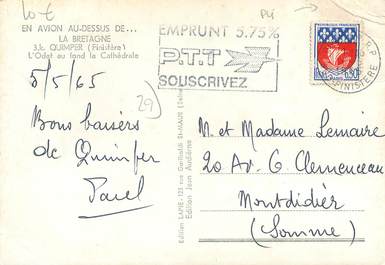 10 €
EN AVION AU-DESSUS DE...
LA BRETAGNE
33c QUIMPER (Finistère)
L'Odet au fond la Cathédrale
5/5/65
29
Bons baisers
de Quimper
EMPRUNT 5.75%
P.T.T
SOUSCRIVEZ
REPUBLIQUE FRANÇAISE
0,30
R.P
FINISTERE
Edition LAPIE - 123 rue Garibaldi St-MAUR (Seine)
Edition Jean Audierne
M. et Madame Lemaire
20 Av. G Clemenceau
Montdidier
(Somme)